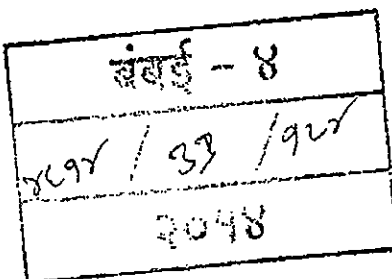 बंबई - ४
४६१४ / ३३ / १८४
२०१४